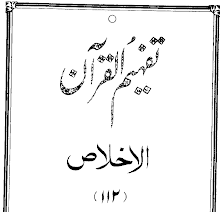 تفہیم القرآن
الاخلاص
(۱۱۲)